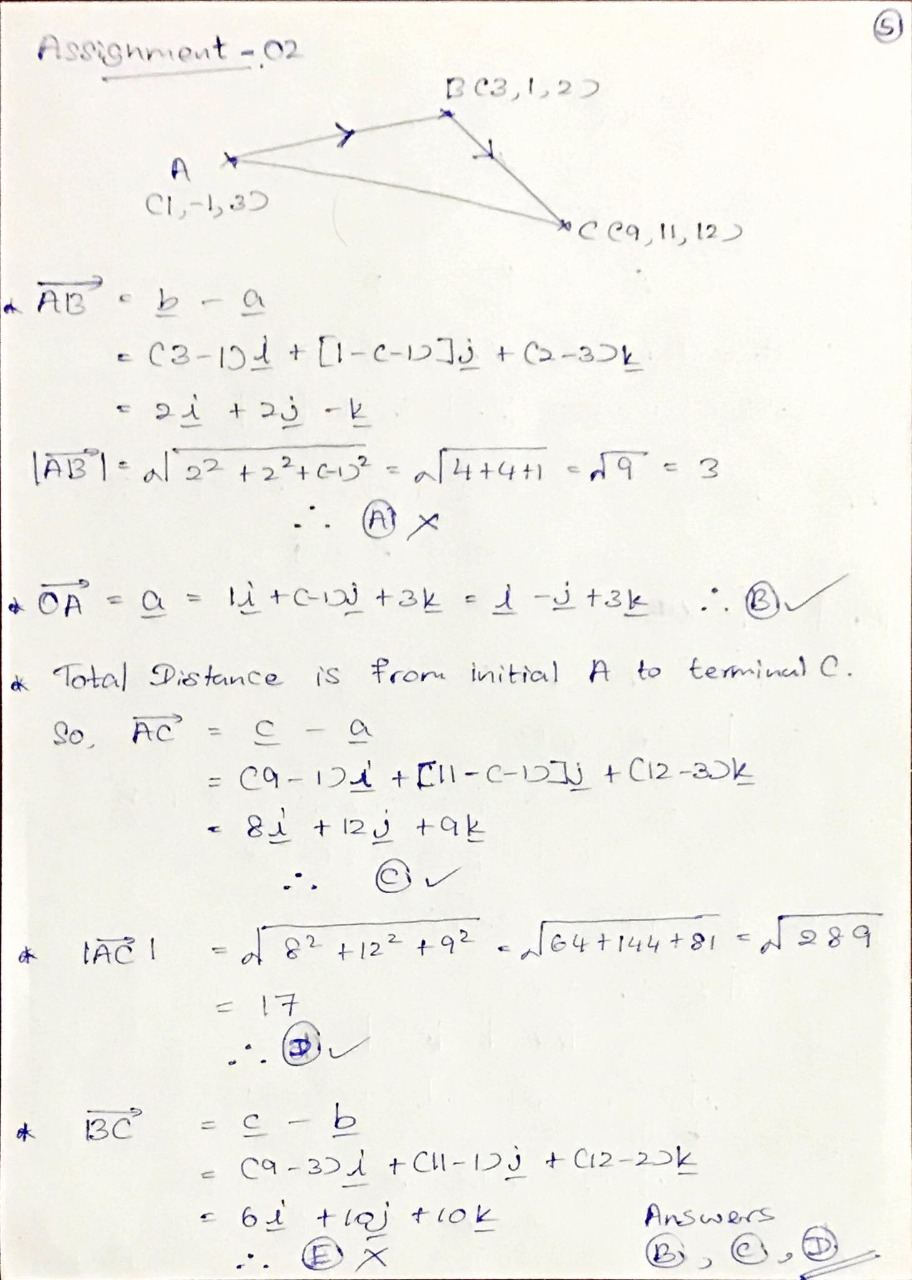 5
Assignment - 02
B (3, 1, 2)
A
(1, -1, 3)
C (9, 11, 12)
* AB = b - a
= (3-1)i + [1-(-1)]j + (2-3)k
= 2i + 2j - k
|AB| = √2² + 2² + (-1)² = √4+4+1 = √9 = 3
∴ A ×
* OA = a = 1i + (-1)j + 3k = i - j + 3k ∴ B ✓
* Total Distance is from initial A to terminal C.
So, AC = c - a
= (9-1)i + [11-(-1)]j + (12-3)k
= 8i + 12j + 9k
∴ C ✓
* |AC| = √8² + 12² + 9² = √64+144+81 = √289
= 17
∴ D ✓
* BC = c - b
= (9-3)i + (11-1)j + (12-2)k
= 6i + 10j + 10k
∴ E ×
Answers
B, C, D